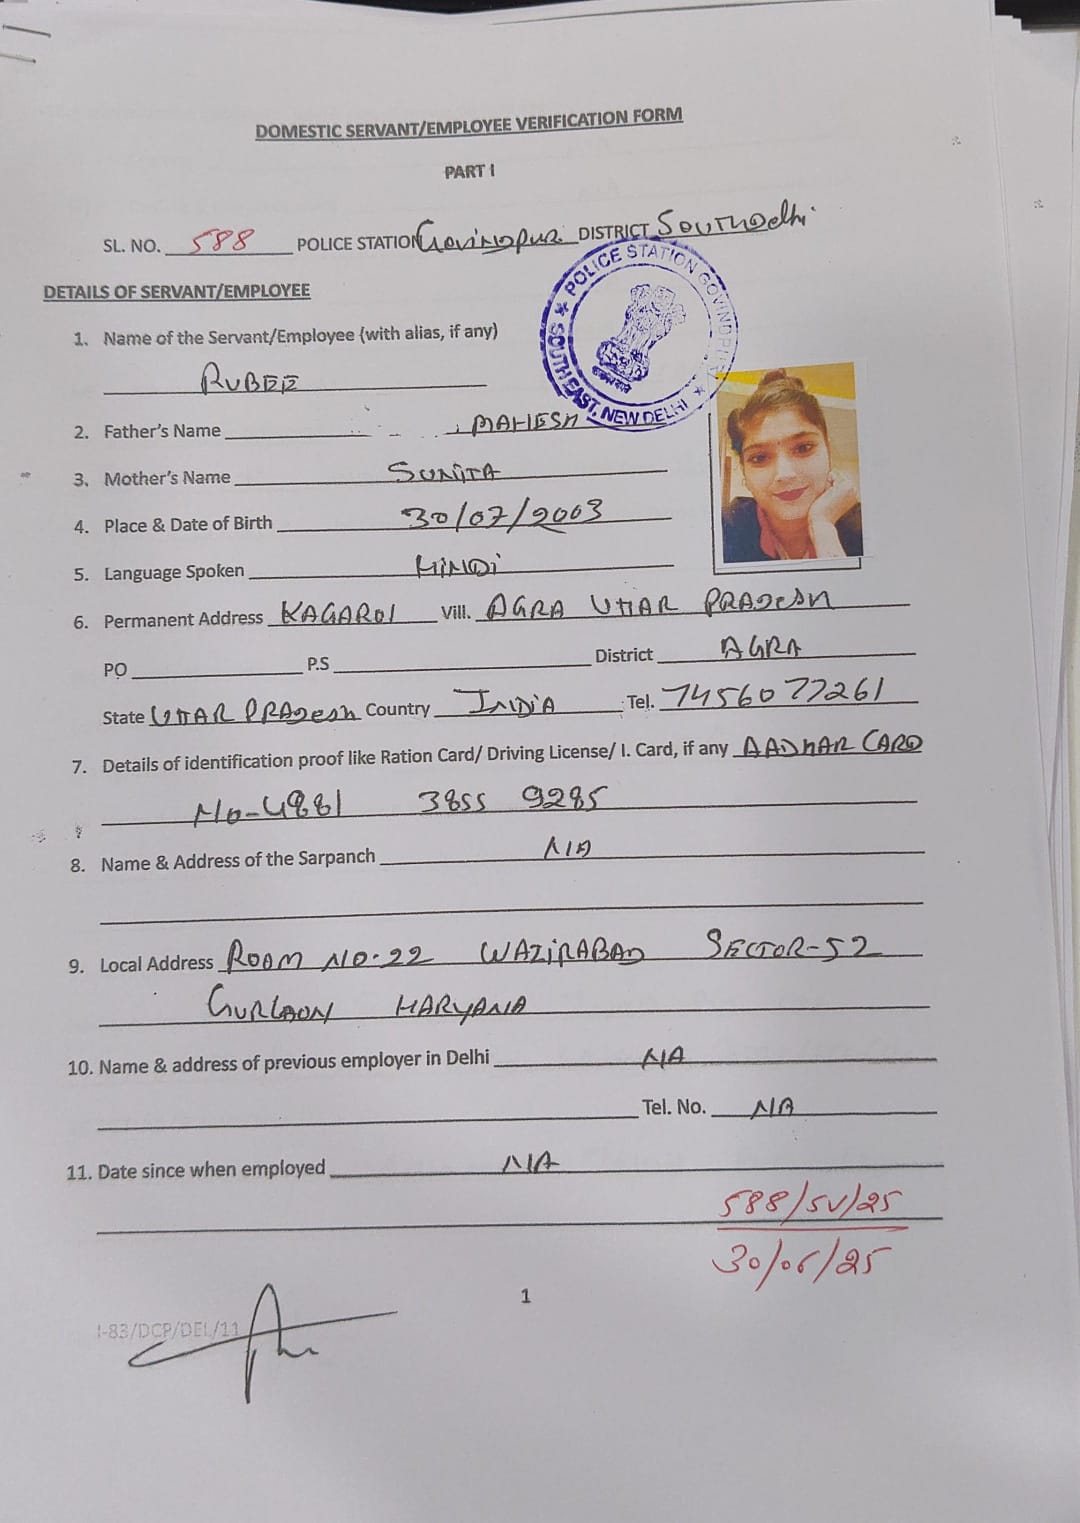 DOMESTIC SERVANT/EMPLOYEE VERIFICATION FORM
PART I
SL. NO. 588 POLICE STATION Govindpuri DISTRICT South Delhi
POLICE STATION GOVINDPURI
SOUTH EAST, NEW DELHI
DETAILS OF SERVANT/EMPLOYEE
1. Name of the Servant/Employee (with alias, if any)
RUBEE
2. Father's Name MAHESH
3. Mother's Name SUNITA
4. Place & Date of Birth 30/07/2003
5. Language Spoken HINDI
6. Permanent Address KAGAROL Vill. AGRA UTTAR PRADESH
PO P.S District AGRA
State UTTAR PRADESH Country INDIA Tel. 7456077261
7. Details of identification proof like Ration Card/ Driving License/ I. Card, if any AADHAR CARD
NO-4881 3855 9285
8. Name & Address of the Sarpanch N/A
9. Local Address ROOM NO-22 WAZIRABAD SECTOR-52
GURGAON HARYANA
10. Name & address of previous employer in Delhi N/A
Tel. No. N/A
11. Date since when employed N/A
588/SV/25
30/06/25
1
I-83/DCP/DEL/11